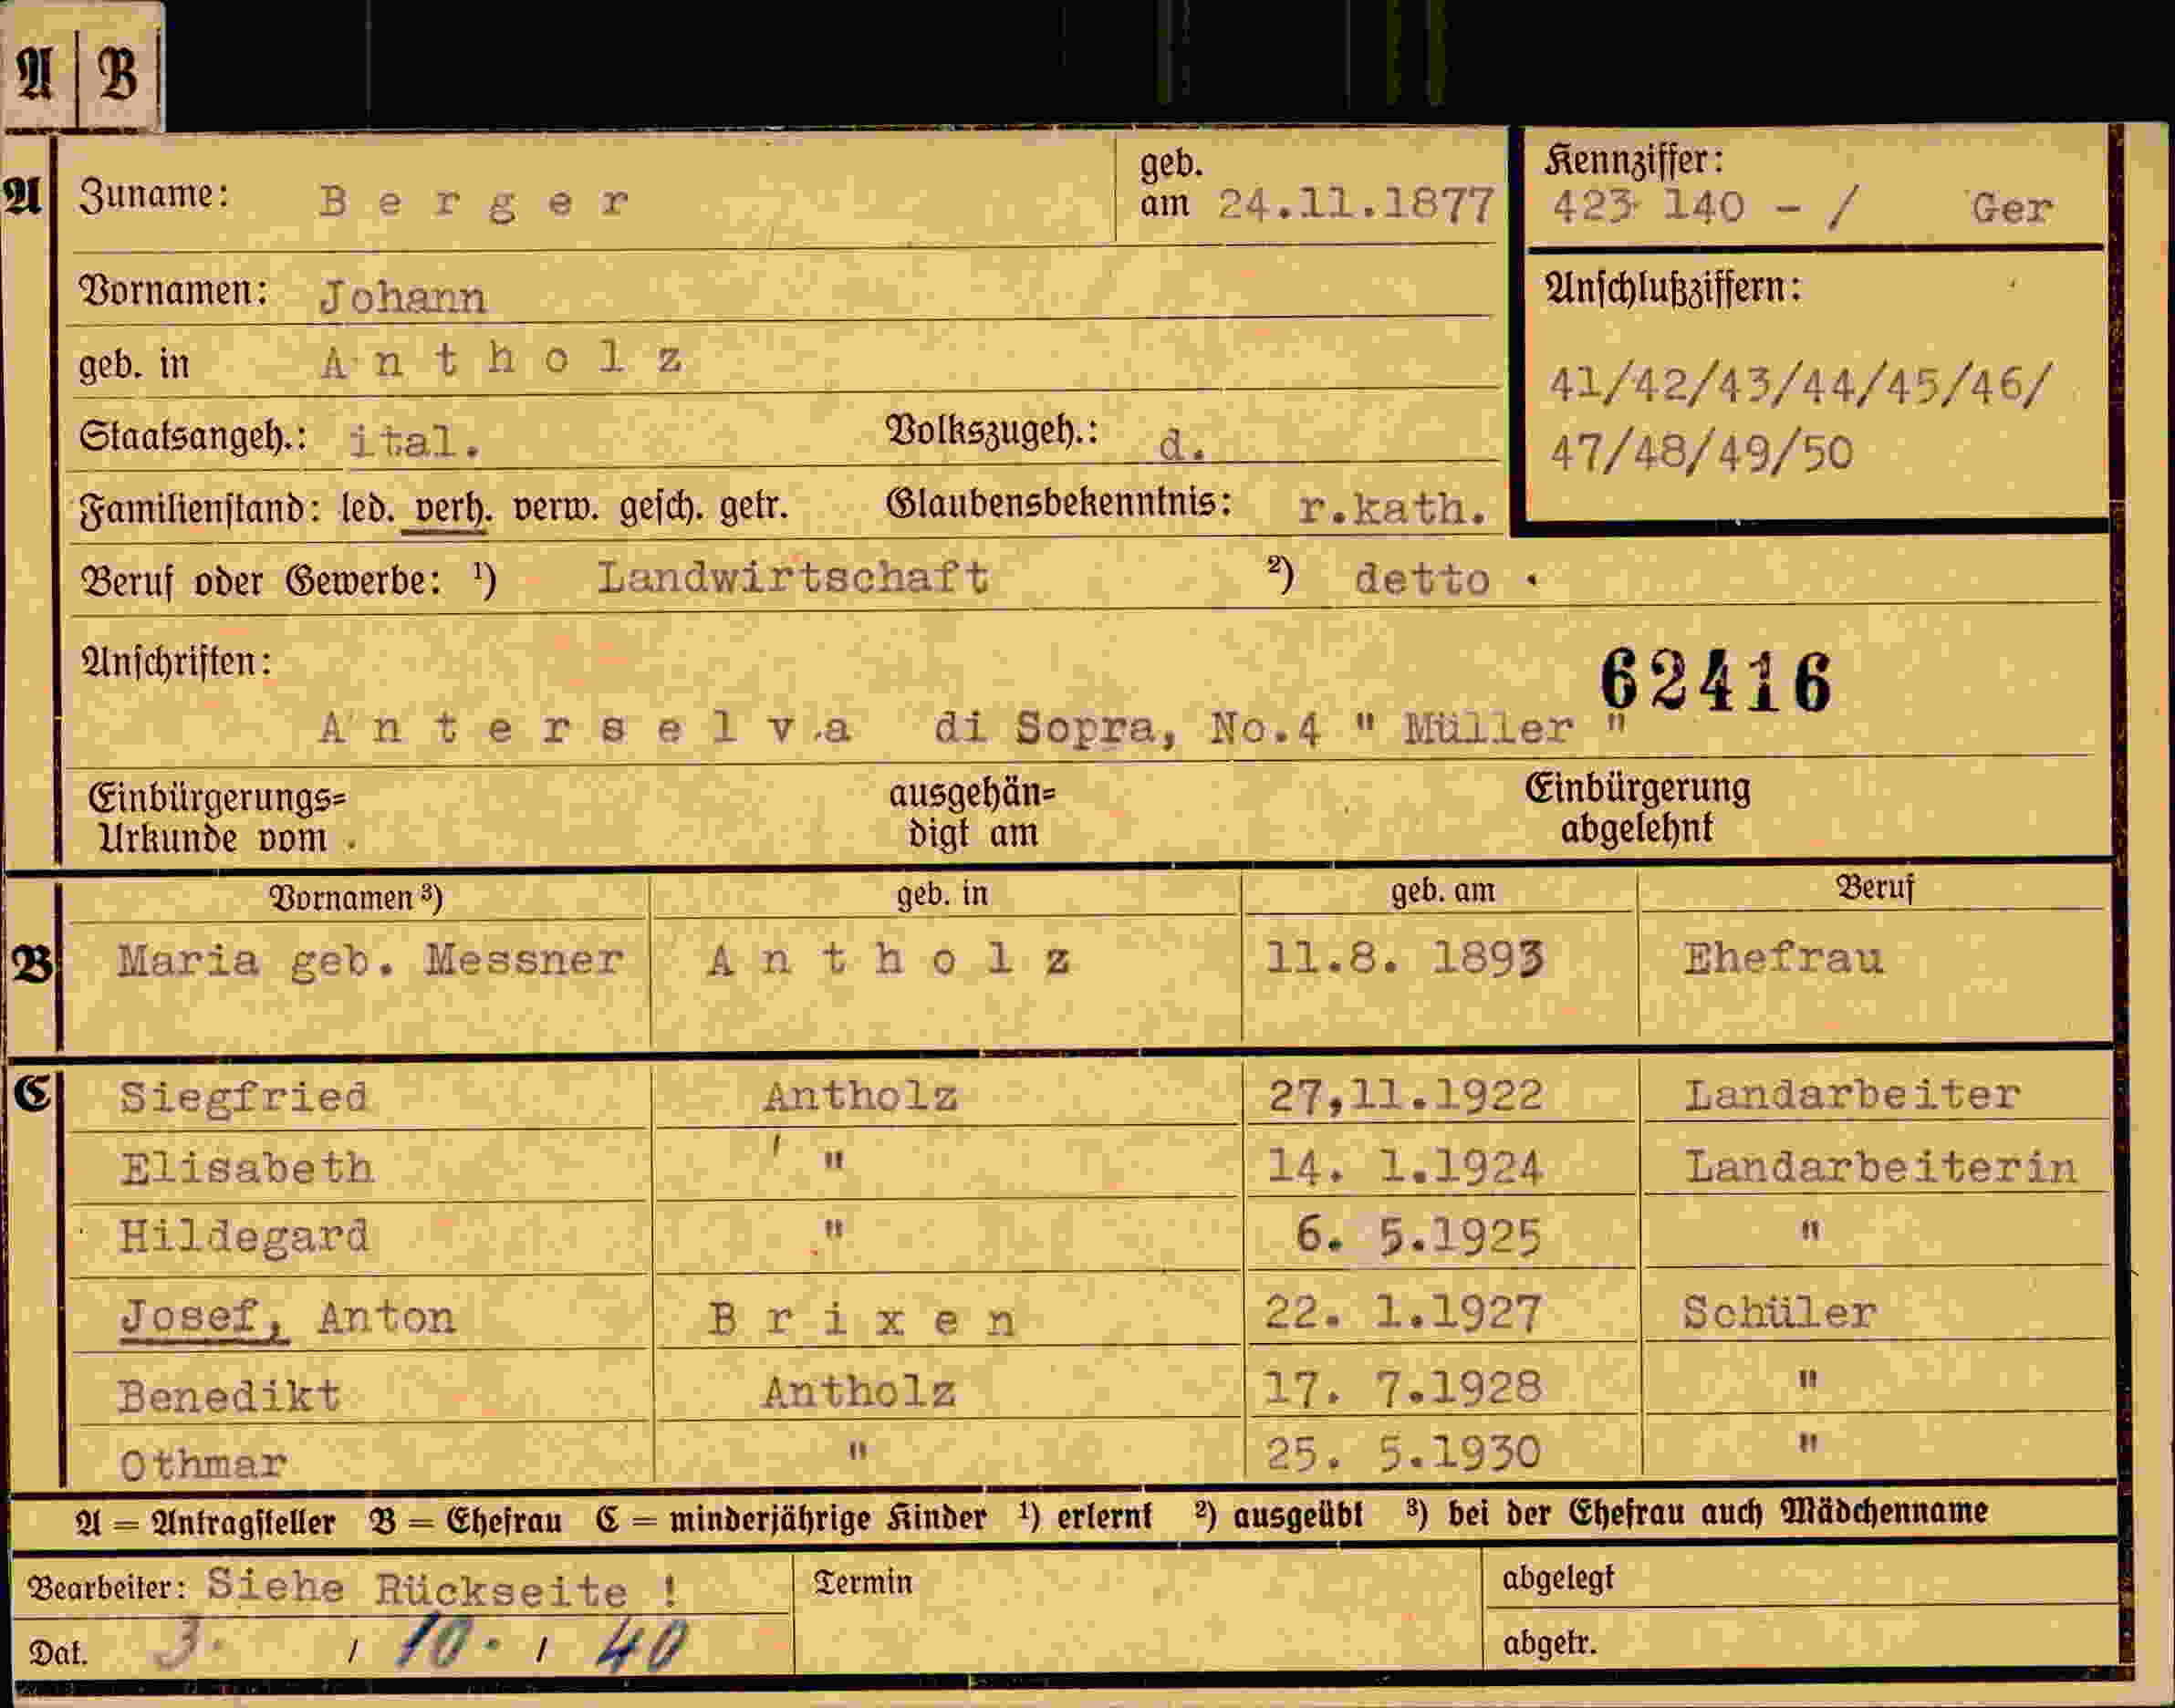 A B
A Zuname: Berger geb. am 24.11.1877
Kennziffer:
423 140 - / Ger
Vornamen: Johann
Anschlußziffern:
geb. in Antholz
41/42/43/44/45/46/
47/48/49/50
Staatsangeh.: ital. Volkszugeh.: d.
Familienstand: led. verh. verw. gesch. getr. Glaubensbekenntnis: r.kath.
Beruf oder Gewerbe: ¹) Landwirtschaft ²) detto .
Anschriften:
62416
Anterselva di Sopra, No.4 " Müller "
Einbürgerungs= ausgehän= Einbürgerung
Urkunde vom digt am abgelehnt
Vornamen ³) geb. in geb. am Beruf
B Maria geb. Messner Antholz 11.8. 1893 Ehefrau
C Siegfried Antholz 27,11.1922 Landarbeiter
Elisabeth " 14. 1.1924 Landarbeiterin
Hildegard " 6. 5.1925 "
Josef, Anton Brixen 22. 1.1927 Schüler
Benedikt Antholz 17. 7.1928 "
Othmar " 25. 5.1930 "
A = Antragsteller B = Ehefrau C = minderjährige Kinder ¹) erlernt ²) ausgeübt ³) bei der Ehefrau auch Mädchenname
Bearbeiter: Siehe Rückseite ! Termin abgelegt
Dat. 3. / 10. / 40 abgetr.